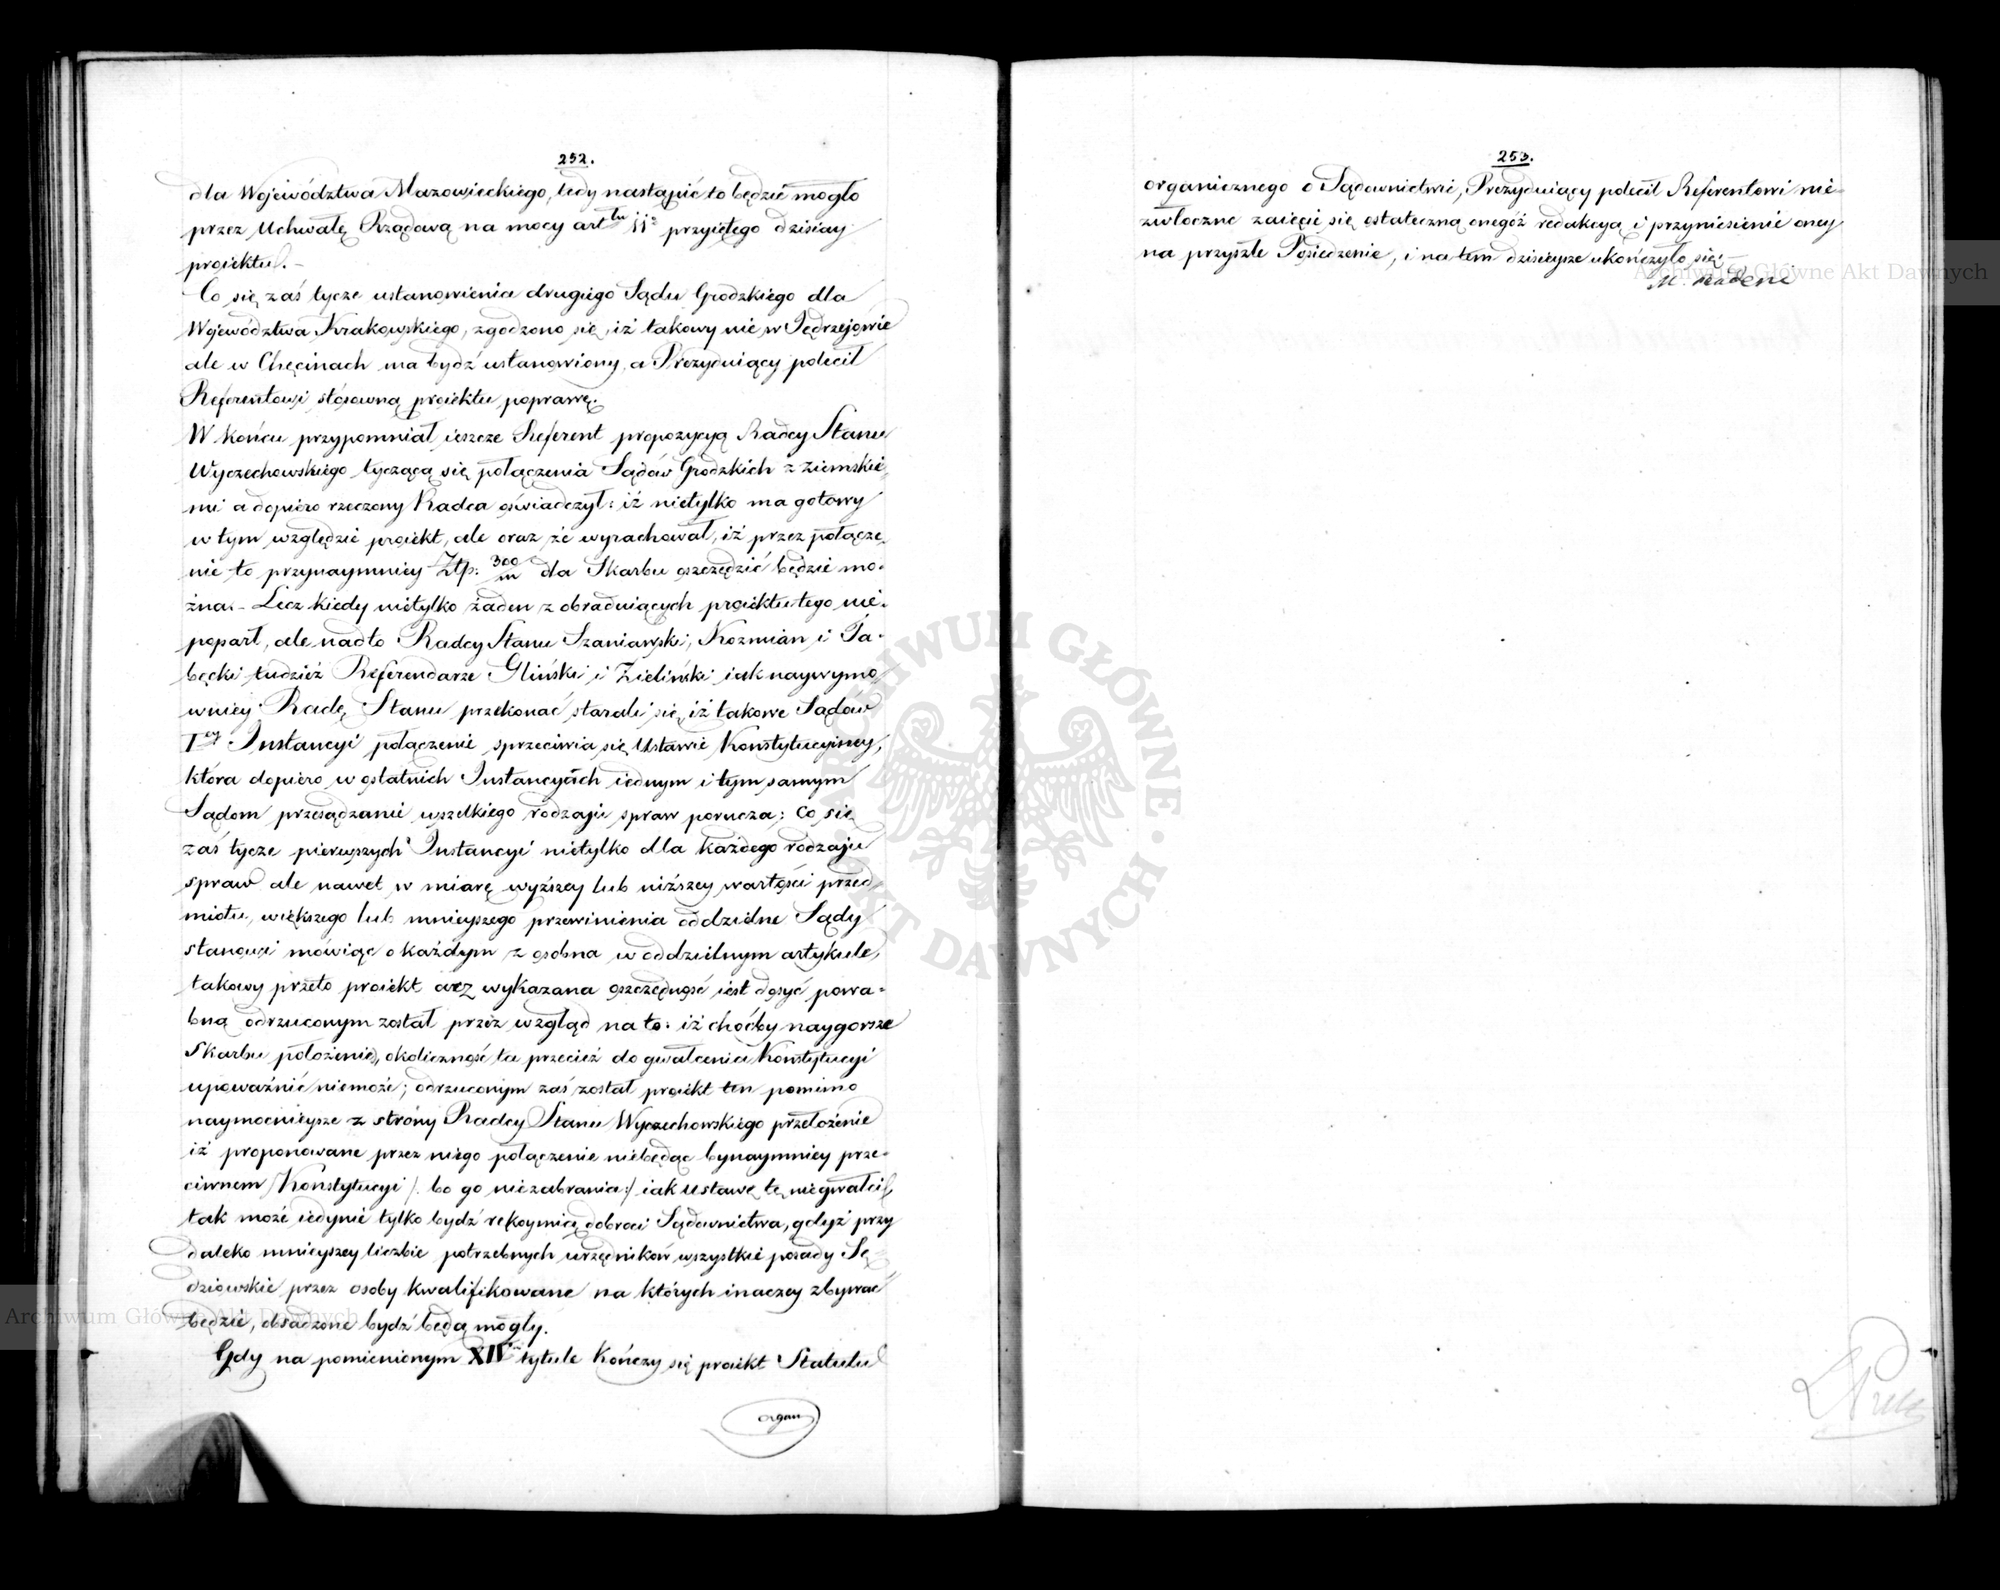 252.
dla Województwa Mazowieckiego, tedy nastąpić to będzie mogło
przez Uchwałę Rządową na mocy art<sup>tu</sup> 11° przyiętego dzisiay
proiektu. –
Co się zaś tycze ustanowienia drugiego Sądu Grodzkiego dla
Województwa Krakowskiego, zgodzono się, iż takowy nie w Jędrzejowie
ale w Chęcinach ma bydź ustanowiony, a Prezyduiący polecił
Referentowi stósowną proiektu poprawę.
W końcu przypomniał ieszcze Referent propozycyą Radcy Stanu
Wyczechowskiego tyczącą się połączenia Sądów Grodzkich z Ziemskie„
mi a dopiero rzeczony Radca oświadczył: iż nietylko ma gotowy
w tym względzie proiekt, ale oraz że wyrachował, iż przez połącze„
nie to przynaymniey Złp. 300/m dla Skarbu oszczędzić będzie mo„
żna. – Lecz kiedy nietylko żaden z obraduiących proiektu tego nie„
poparł, ale nadto Radcy Stanu Szaniawski, Kozmian i Ja„
bęcki tudzież Referendarze Gliński i Zieliński iak naywymo„
wniey Radę Stanu przekonać starali się, iż takowe Sądów
I<sup>ey</sup> Instancyi połączenie sprzeciwia się Ustawie Konstytucyiney,
która dopiero w ostatnich Instancyach iednym i tym samym
Sądom przesądzanie wszelkiego rodzaju spraw porucza; co się
zaś tycze pierwszych Instancyi nietylko dla każdego rodzaju
spraw ale nawet w miarę wyższey lub niższey wartości przed„
miotu, większego lub mnieyszego przewinienia oddzielne Sądy
stanowi mówiąc o każdym z osobna w oddzielnym artykule,
takowy przeto proiekt acz wykazana oszczędność iest dosyć powa„
bną odrzuconym został przez wzgląd na to: iż choćby naygorsze
Skarbu położenie, okoliczność ta przecież do gwałcenia Konstytucyi
upoważnić niemoże; odrzuconym zaś został proiekt ten pomimo
naymocnieysze z strony Radcy Stanu Wyczechowskiego przełożenie
iż proponowane przez niego połączenie niebędąc bynaymniey prze„
ciwnem Konstytucyi /: bo go niezabrania:/ iak ustawę tę niegwałci,
tak może iedynie tylko bydź rękoymią dobroci Sądownictwa, gdyż przy
daleko mnieyszey liczbie potrzebnych urzędników wszystkie posady Sę„
dziowskie przez osoby kwalifikowane na których inaczey zbywać
będzie, obsadzone bydź będą mogły.
Gdy na pomienionym XIV tytule kończy się proiekt Statutu
organ
253.
organicznego o Sądownictwie, Prezyduiący polecił Referentowi nie„
zwłoczne zaięcie się ostateczną onegóż redakcyą i przyniesienie oney
na przyszłe Posiedzenie, i na tem dzisieysze ukończyło się.
M. Badeni
Archiwum Główne Akt Dawnych
ARCHIWUM GŁÓWNE · AKT DAWNYCH ·
Archiwum Główne Akt Dawnych